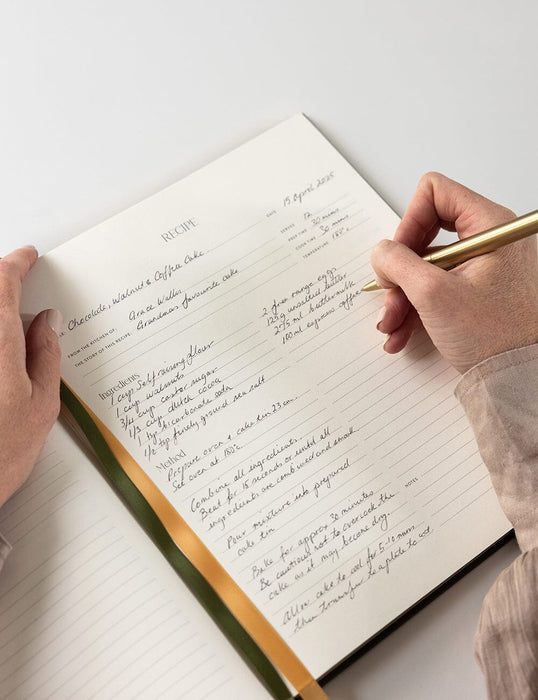 RECIPE
DATE 15 April 2025
SERVES 12
PREP TIME 30 mins
COOK TIME 30 mins
TEMPERATURE 180°c
Chocolate, Walnut & Coffee Cake
FROM THE KITCHEN OF: Grace Waller
THE STORY OF THIS RECIPE: Grandmas favourite cake
Ingredients
1 cup Self raising flour
1 cup walnuts
3/4 cup castor sugar
1/3 cup dutch cocoa
1 tsp bi carbonate soda
1/2 tsp finely ground sea salt
2 free range eggs
125g unsalted butter
275ml buttermilk
100ml espresso coffee
Method
Prepare oven & cake tin 23cm.
Set oven at 180°c
Combine all ingredients.
Beat for 15 seconds or until all
ingredients are combined and smooth
Pour mixture into prepared
cake tin
Bake for approx 30 minutes
Be cautious not to overcook the
cake as it may become dry.
NOTES
Allow cake to cool for 5-10 mins
then transfer to a plate to set.